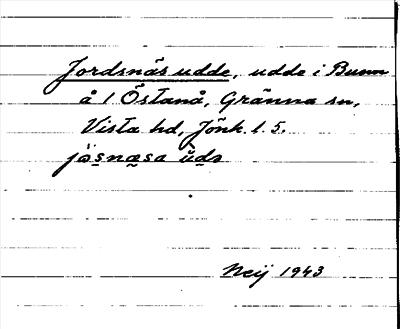 Jordsnäs udde, udde i Bunn
å 1 Östanå, Gränna sn,
Vista hd, Jönk. l. 5.
jo̰snæsa ùds
Neij 1943